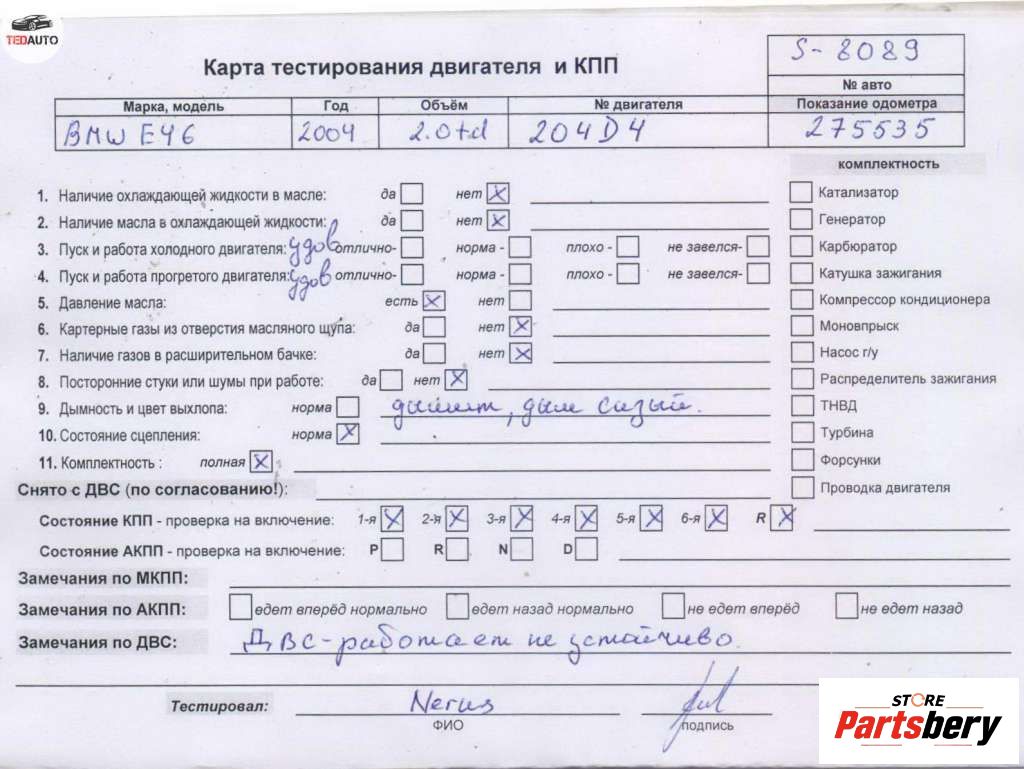 TEDAUTO
Карта тестирования двигателя и КПП
S-8089
№ авто
Марка, модель Год Объём № двигателя Показание одометра
BMW E46 2004 2.0td 204D4 275535
комплектность
1. Наличие охлаждающей жидкости в масле: да нет X
Катализатор
2. Наличие масла в охлаждающей жидкости: да нет X
Генератор
3. Пуск и работа холодного двигателя: удов отлично- норма - плохо - не завелся-
Карбюратор
4. Пуск и работа прогретого двигателя: удов отлично- норма - плохо - не завелся-
Катушка зажигания
5. Давление масла: есть X нет
Компрессор кондиционера
6. Картерные газы из отверстия масляного щупа: да нет X
Моновпрыск
7. Наличие газов в расширительном бачке: да нет X
Насос г/у
8. Посторонние стуки или шумы при работе: да нет X
Распределитель зажигания
9. Дымность и цвет выхлопа: норма дымит, дым сизый.
ТНВД
10. Состояние сцепления: норма X
Турбина
11. Комплектность : полная X
Форсунки
Снято с ДВС (по согласованию!):
Проводка двигателя
Состояние КПП - проверка на включение: 1-я X 2-я X 3-я X 4-я X 5-я X 6-я X R X
Состояние АКПП - проверка на включение: P R N D
Замечания по МКПП:
Замечания по АКПП: едет вперёд нормально едет назад нормально не едет вперёд не едет назад
Замечания по ДВС: ДВС-работает не устойчиво.
Тестировал: Nerus
ФИО подпись
STORE
Partsbery